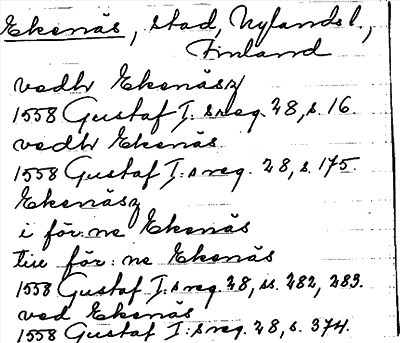 Ekenäs, stad, Nylandsl.,
Finland
vedhr Ekenäsz
1558 Gustaf I:s reg. 28, s. 16.
vedhr Ekenäs.
1558 Gustaf I:s reg. 28, s. 175.
Ekenäsz
i för:ne Ekenäs
till för:ne Ekenäs
1558 Gustaf I:s reg. 28, ss. 282, 283.
ved Ekenäs
1558 Gustaf I:s reg. 28, s. 374.